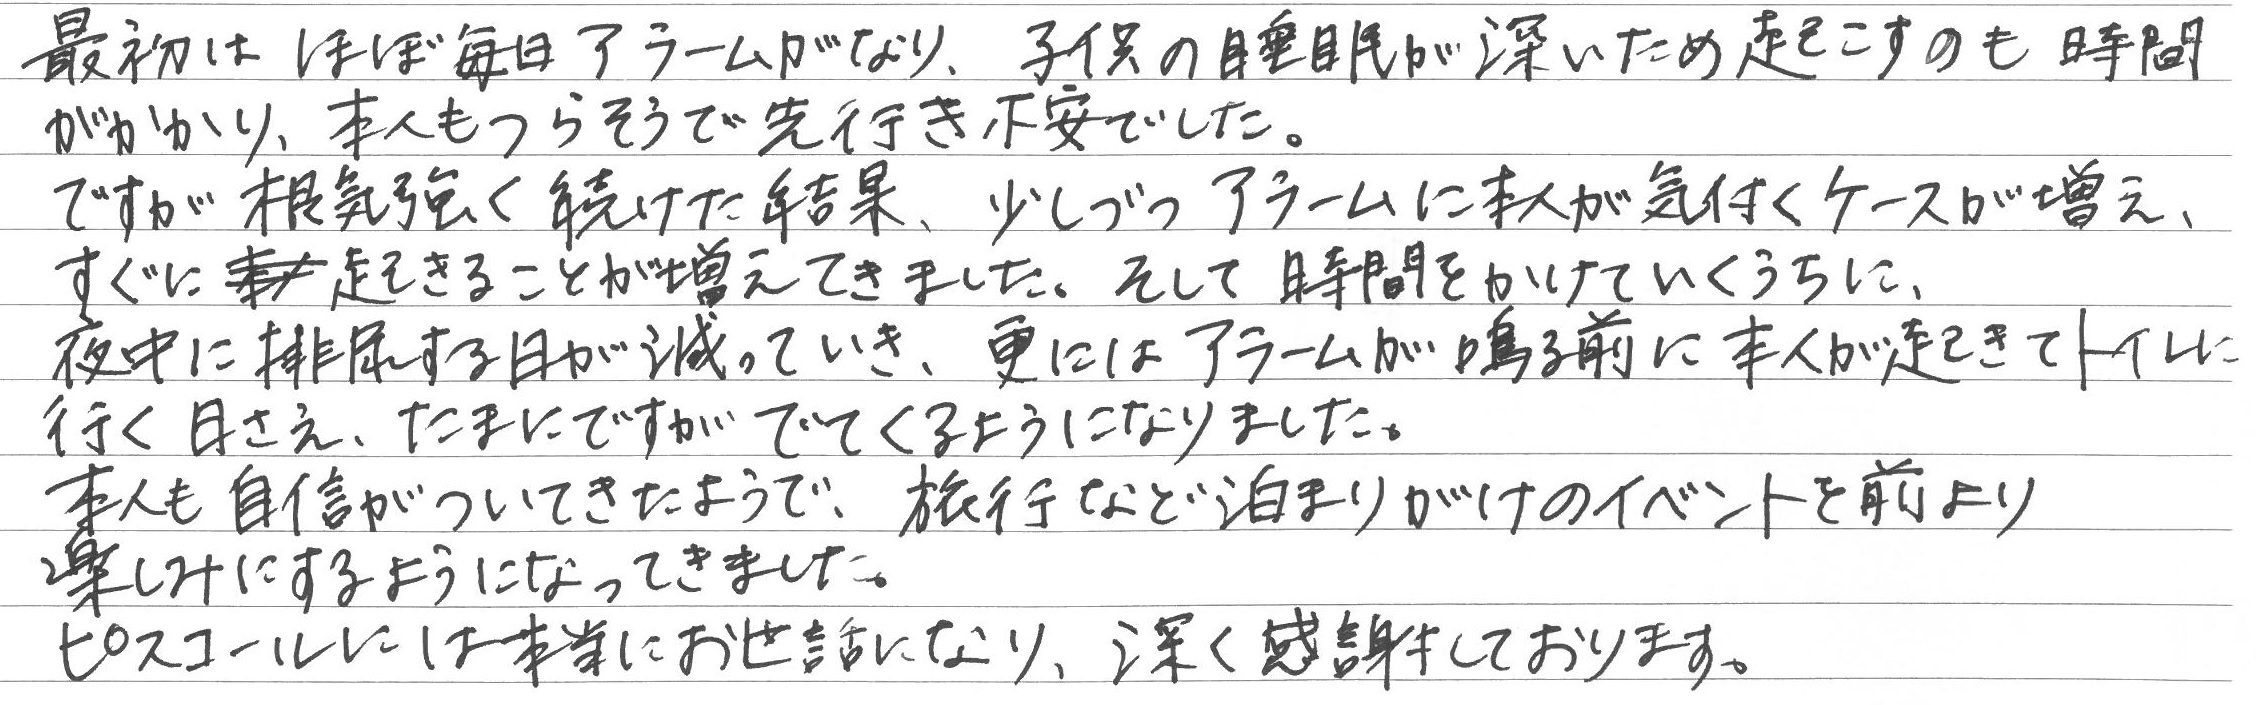 最初は ほぼ毎日アラームがなり、子供の睡眠が深いため起こすのも時間
がかかり、本人もつらそうで先行き不安でした。
ですが根気強く続けた結果、少しづつアラームに本人が気付くケースが増え、
すぐに起きることが増えてきました。そして時間をかけていくうちに、
夜中に排尿する日が減っていき、更にはアラームが鳴る前に本人が起きてトイレに
行く日さえ、たまにですがでてくるようになりました。
本人も自信がついてきたようで、旅行など泊まりがけのイベントを前より
楽しみにするようになってきました。
ピスコールには本当にお世話になり、深く感謝しております。